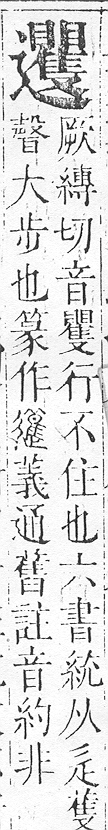 厥縛切音矍行不住也六書統从辵蒦
聲大步也篆作義通舊註音約非